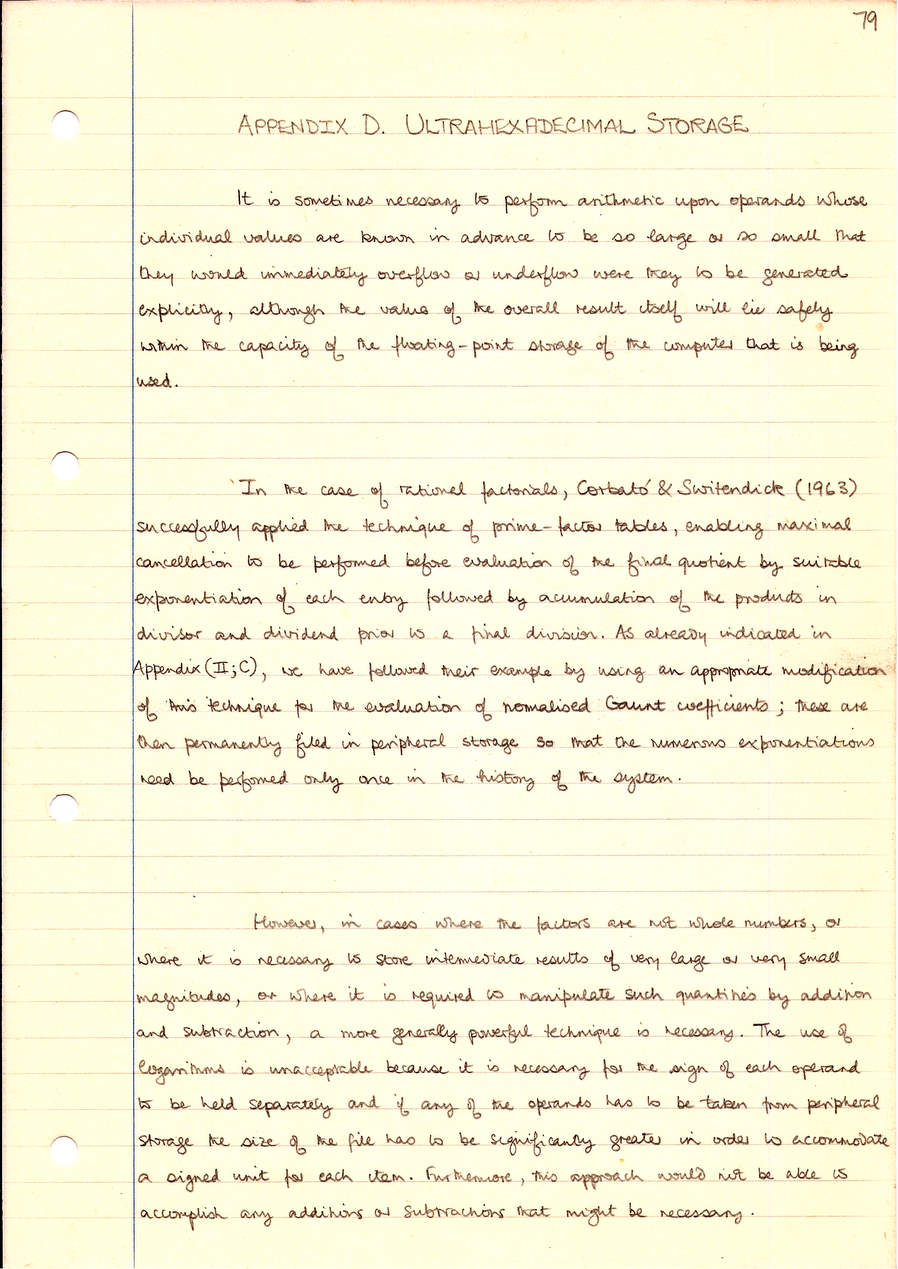 79
APPENDIX D. ULTRAHEXADECIMAL STORAGE
It is sometimes necessary to perform arithmetic upon operands whose
individual values are known in advance to be so large or so small that
they would immediately overflow or underflow were they to be generated
explicitly, although the value of the overall result itself will lie safely
within the capacity of the floating-point storage of the computer that is being
used.
In the case of rational factorials, Corbató & Switendick (1963)
successfully applied the technique of prime-factor tables, enabling maximal
cancellation to be performed before evaluation of the final quotient by suitable
exponentiation of each entry followed by accumulation of the products in
divisor and dividend prior to a final division. As already indicated in
Appendix (II;C), we have followed their example by using an appropriate modification
of this technique for the evaluation of normalised Gaunt coefficients; these are
then permanently filed in peripheral storage so that the numerous exponentiations
need be performed only once in the history of the system.
However, in cases where the factors are not whole numbers, or
where it is necessary to store intermediate results of very large or very small
magnitudes, or where it is required to manipulate such quantities by addition
and subtraction, a more generally powerful technique is necessary. The use of
logarithms is unacceptable because it is necessary for the sign of each operand
to be held separately and if any of the operands has to be taken from peripheral
storage the size of the file has to be significantly greater in order to accommodate
a signed unit for each item. Furthermore, this approach would not be able to
accomplish any additions or subtractions that might be necessary.